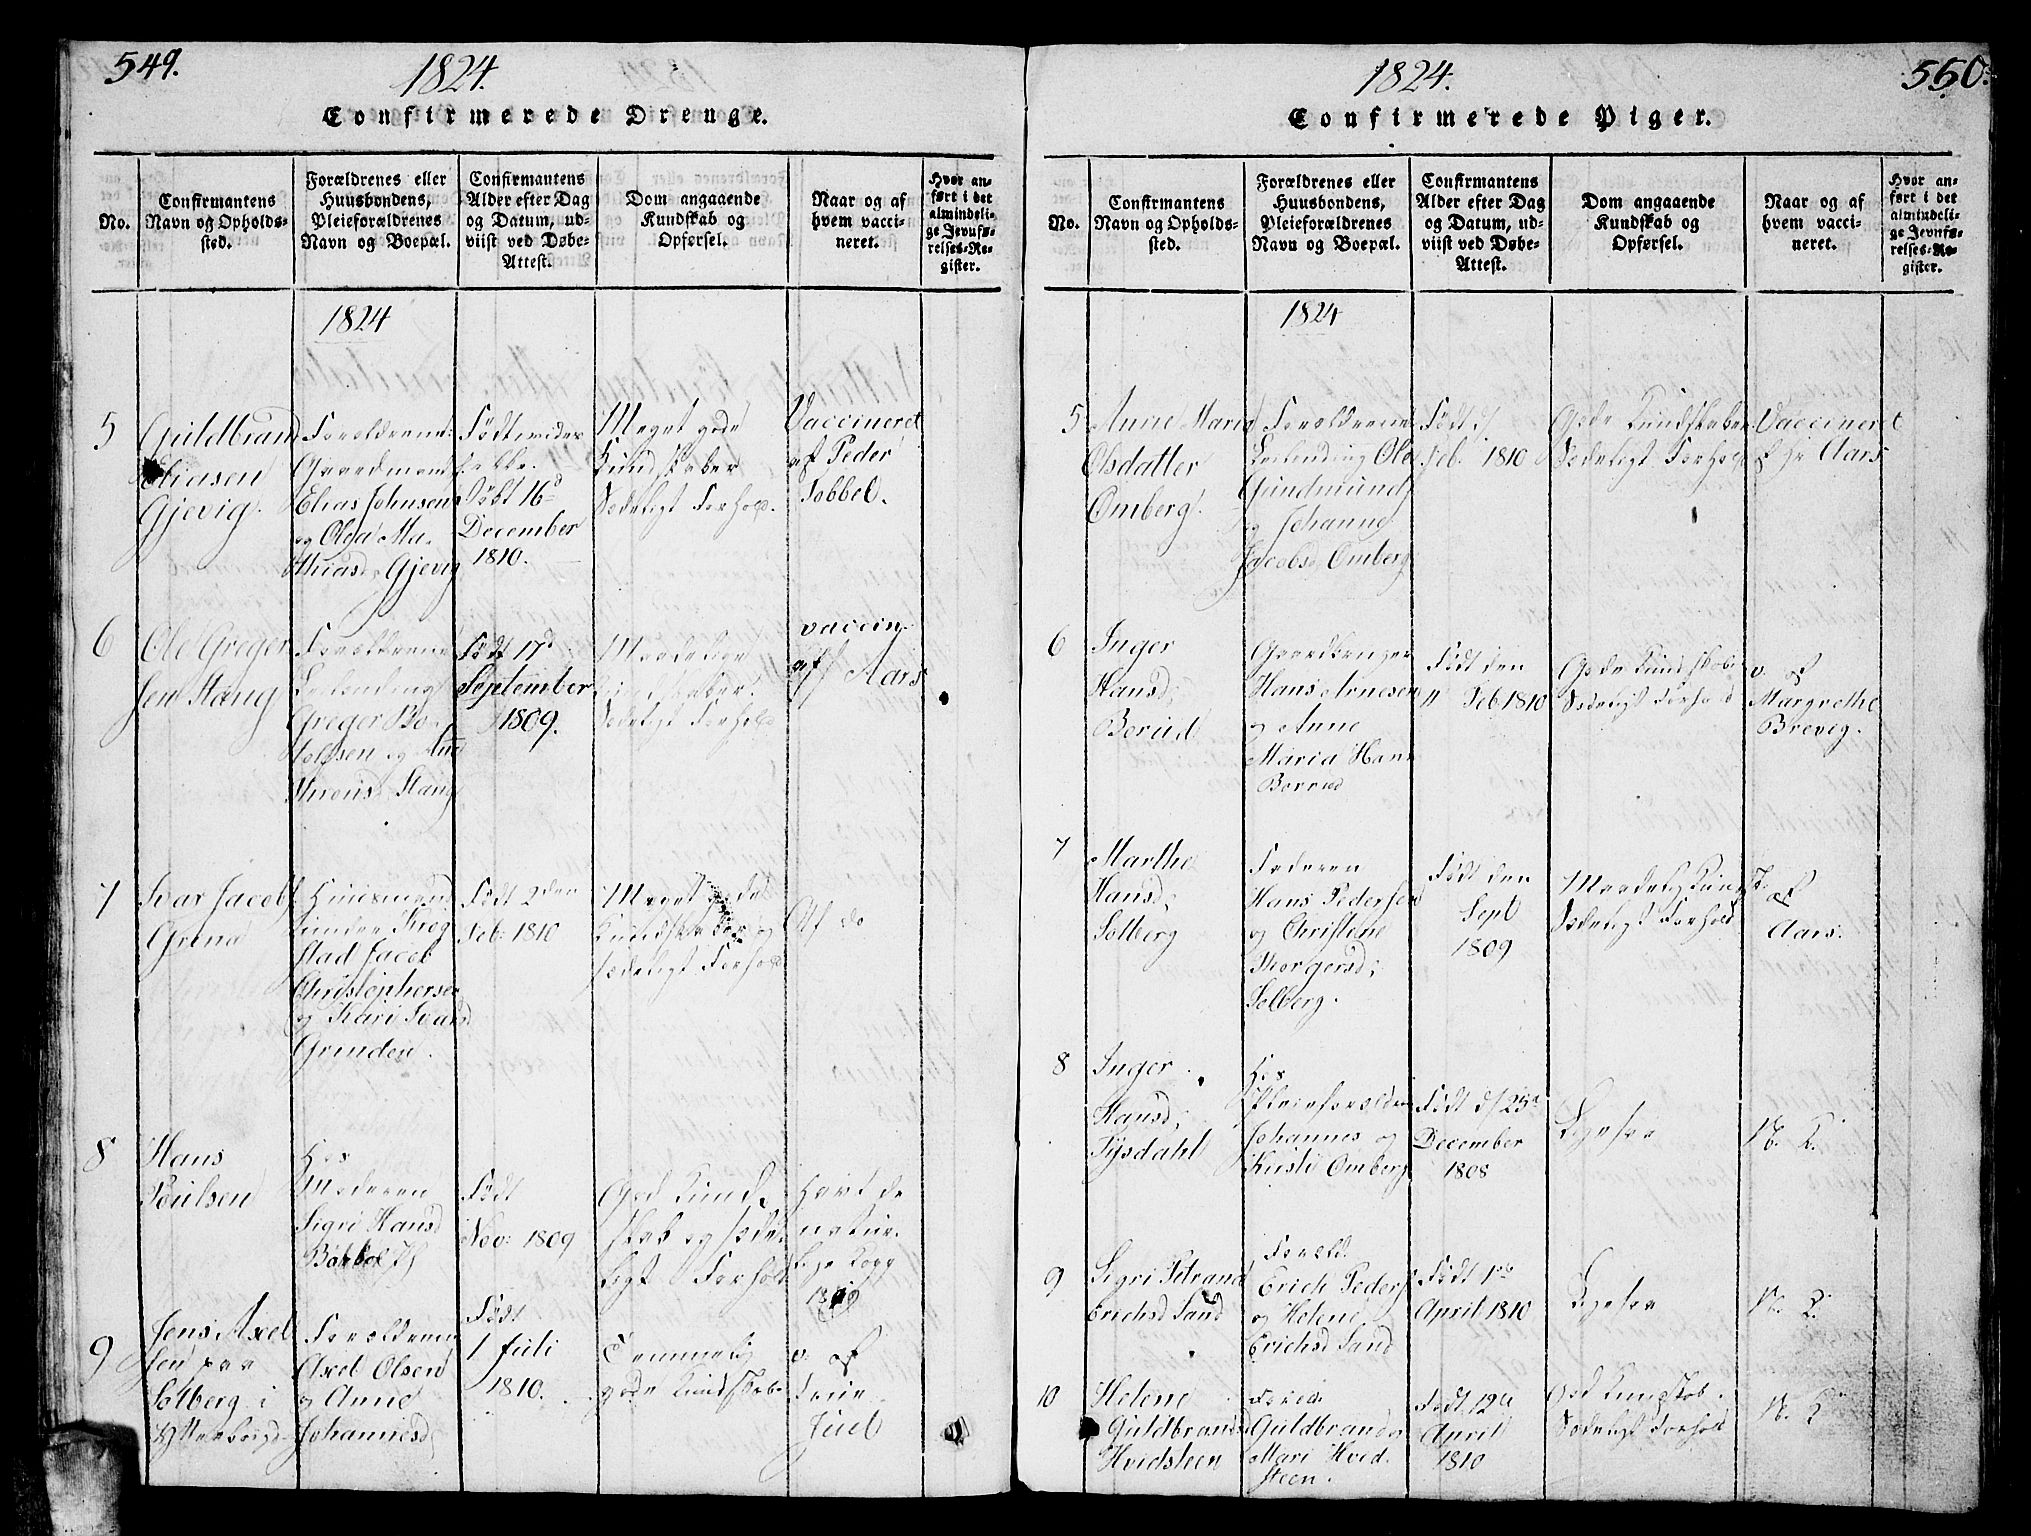 549.
1824.
Confirmerede Drenge.
No.
Confirmantens
Navn og Opholds-
sted.
Forældrenes eller
Huusbondens,
Pleieforældrenes
Navn og Boepæl.
Confirmantens
Alder efter Dag
og Datum, ud-
viist ved Døbe-
Attest.
Dom angaaende
Kundskab og
Opførsel.
Naar og af
hvem vacci-
neret.
Hvor an-
ført i det
almindeli-
ge Jevnfø-
relses-Re-
gister.
1824
5
Guldbrand
Eliasen
Gjevig.
Forældrene
Gaardmand
Elias Johnsen
og Olea Ma-
thiasd Gjevig
Født
Døbt 16d
December
1810.
Meget gode
Kundskaber
Sædeligt Forhold.
Vaccineret
af Peder
Tobbel.
6
Ole Greger
sen Stang
Forældrene
Leilending
Greger Bo-
Stang
Født 17d
September
1809.
Kundskaber.
Sædeligt Forhold
vaccin
af Aars
7
Ivar Jacobs
Grina
Huusmand
under Krig
stad Jacob
Christophersen
og Kari Ivarsd
Grinden.
Født 2den
Feb: 1810
Meget gode
Kundskaber og
sædeligt Forhold
Af do
8
Hans
Poulsen
Hos
Moderen
Sigri Hansd
Født
Nov: 1809
God Kund-
skab og sæde-
ligt Forhold
Havt de
natur-
lige Kopp
9
Jens Axel
sen paa
Solberg i
Forældrene
Axel Olsen
og Anne
Johannesd
Født
1 Juli
1810.
Temmelig
gode Kundskab
v. af
Frue
Juel
550.
1824.
Confirmerede Piger.
No.
Confirmantens
Navn og Opholds-
sted.
Forældrenes eller
Huusbondens,
Pleieforældrenes
Navn og Boepæl.
Confirmantens
Alder efter Dag
og Datum, ud-
viist ved Døbe-
Attest.
Dom angaaende
Kundskab og
Opførsel.
Naar og af
hvem vacci-
neret.
Hvor an-
ført i det
almindeli-
ge Jevnfø-
relses-Re-
gister.
1824
5
Anne Maria
Olsdatter
Omberg.
Forældrene
Leilending Ole
Gundmunds
og Johanne
Jacobsd Omberg
Født d
Feb. 1810
Gode Kundskaber
Sædeligt Forhold
Vaccineret
af Hr Aars
6
Inger
Hansd;
Borud
Gaardbruger
Hans Arnesen
og Anne
Maria Hans
Borrud
Født den
11 Feb 1810
Gode Kundskaber
Sædeligt Forhold
v. af
Margrethe
Brevig.
7
Marthe
Hansd;
Solberg
Faderen
Hans Pedersen
og Christene
Thorgersd;
Solberg.
Født den
Sept
1809
Maadelig Kundsk.
Sædeligt Forhold
af
Aars.
8
Inger
Hansd;
Tysdahl
Hos
Pleieforældre
Johannes og
Kirsti Omberg
Født d/ 25d
December
1808
Ligesaa
9
Sigri Strand
Erichsd Sand
Foræld.
Erich Peders
og Helene
Erichsd Sand
Født 1ste
April 1810
Ligesaa
10
Helene
Guldbrandsd
Hvidsteen
Foræld.
Guldbrand og
Mari Hvid-
steen.
Født 12te
April
1810
God Kundskab
Sædeligt Forhold